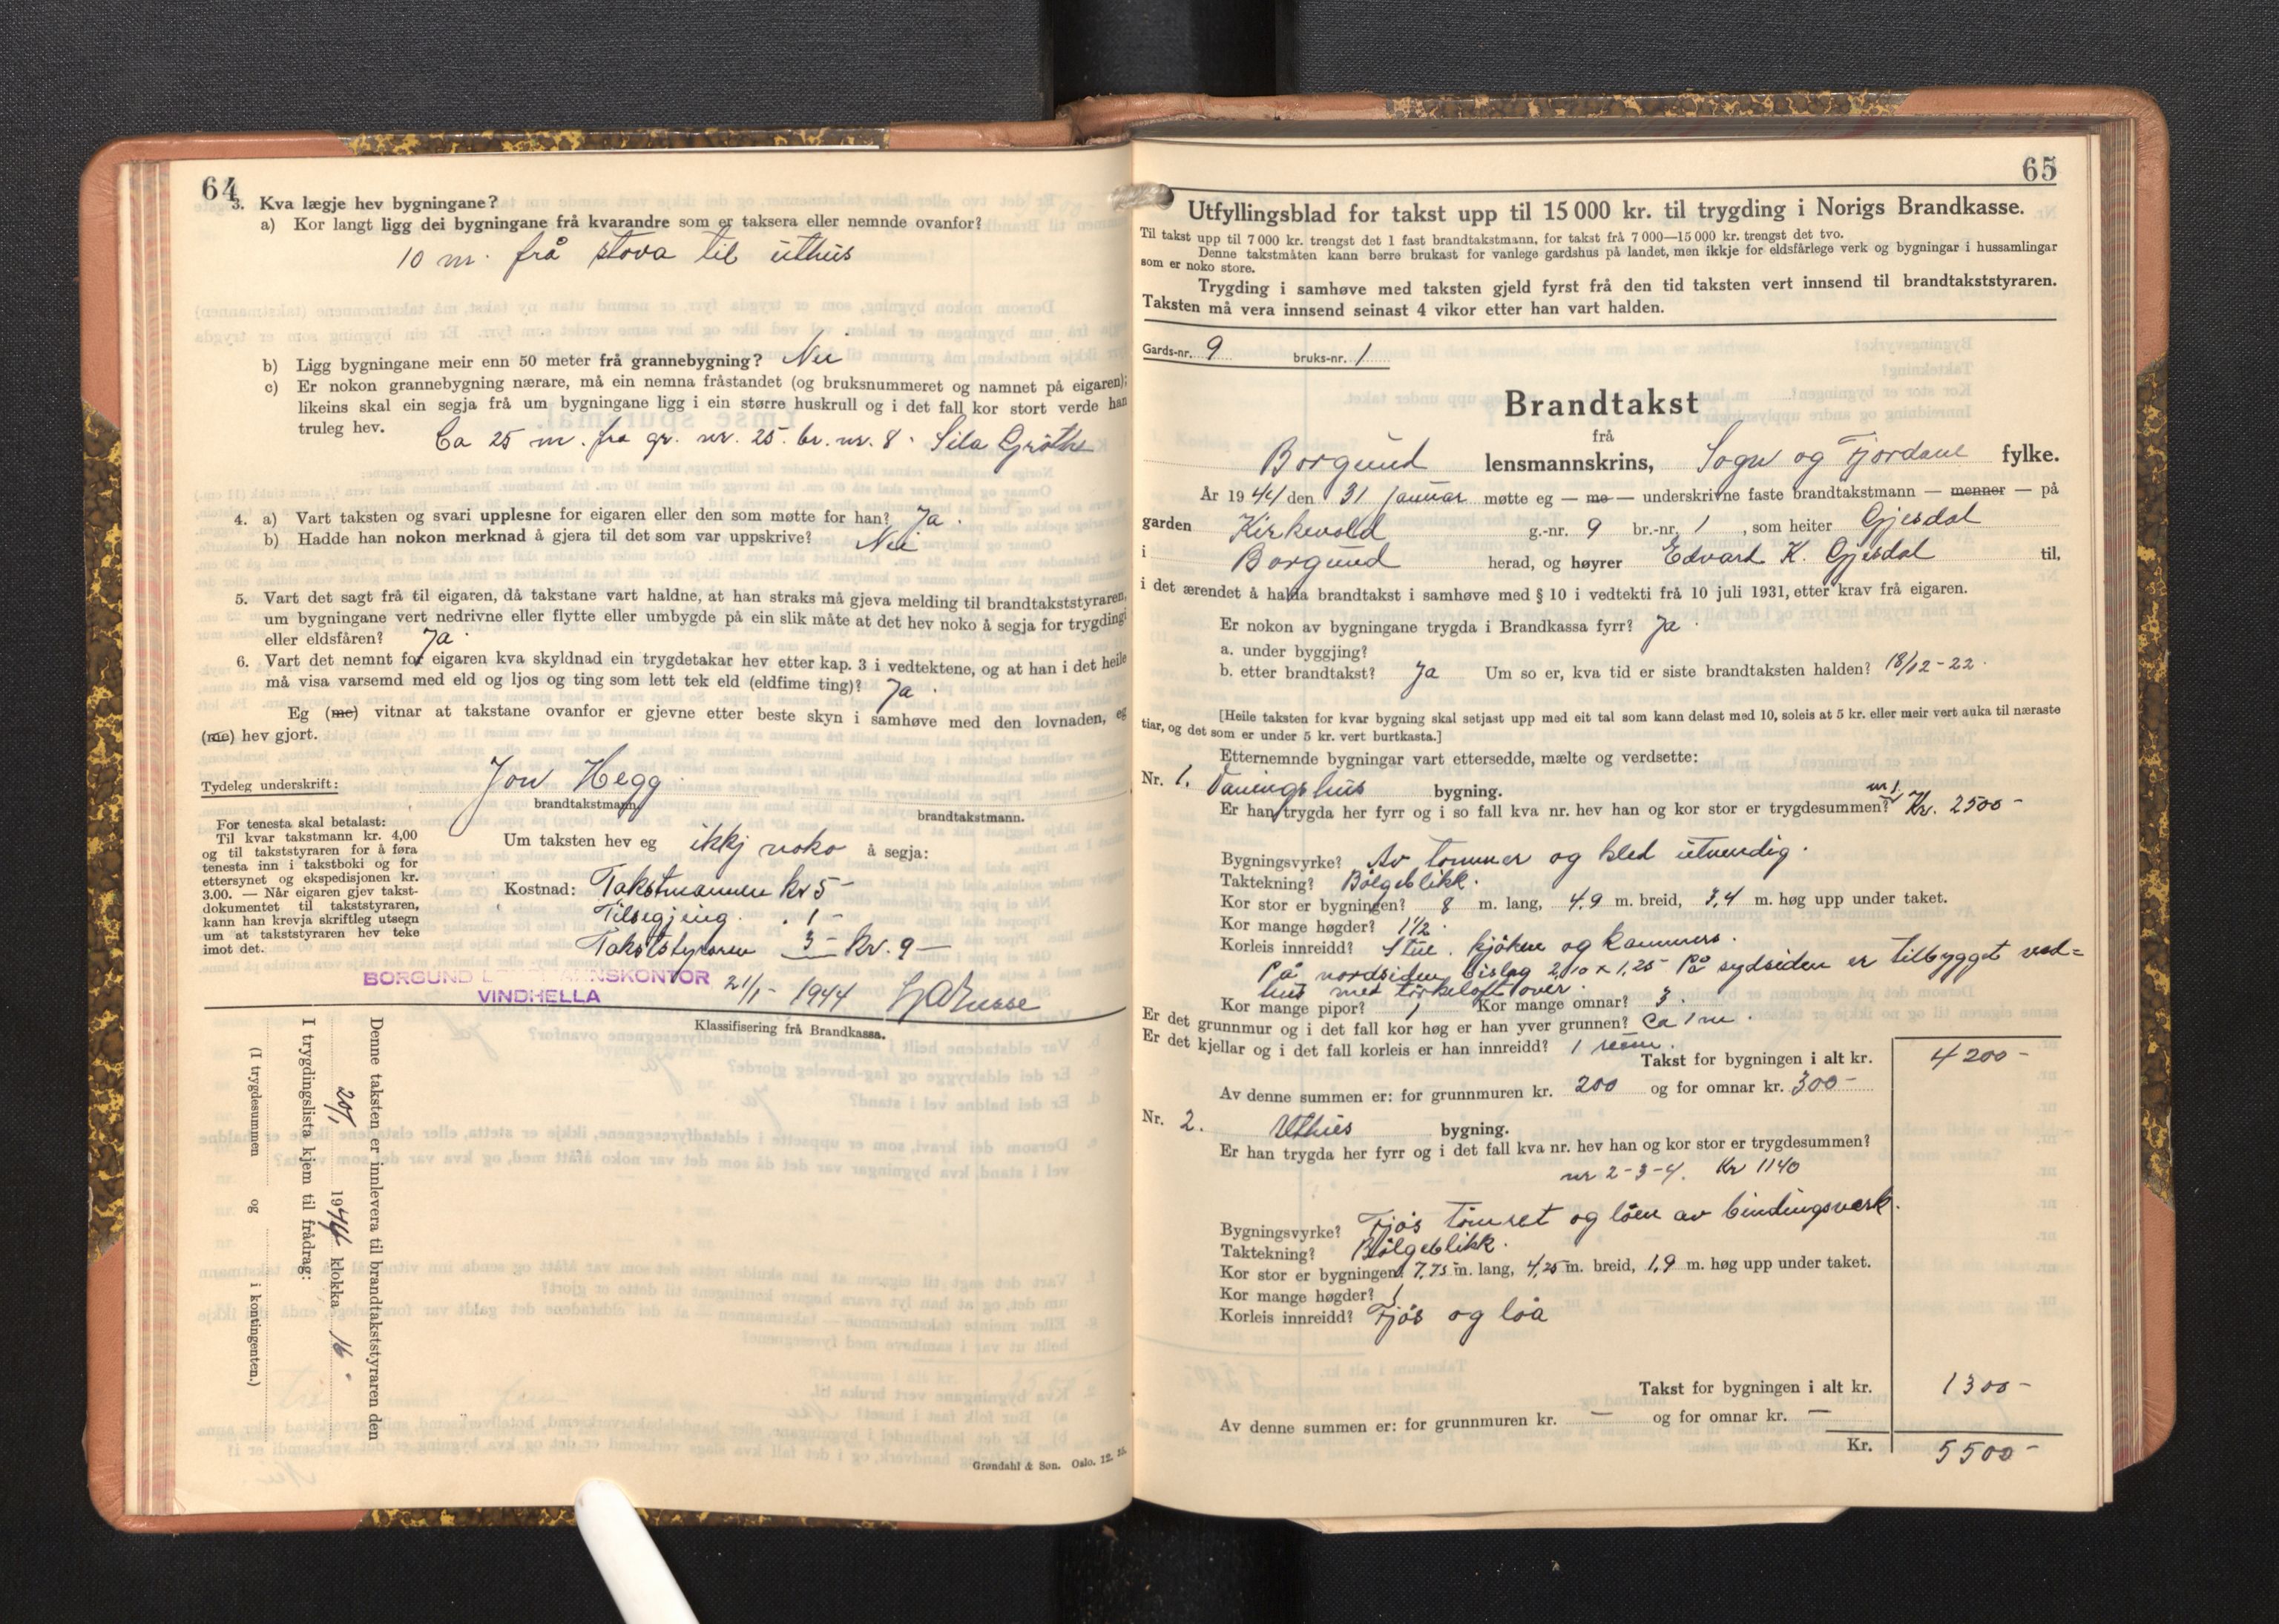 64
3. Kva lægje hev bygningane?
a) Kor langt ligg dei bygningane frå kvarandre som er taksera eller nemnde ovanfor?
10 m. frå stova til uthus
b) Ligg bygningane meir enn 50 meter frå grannebygning? Nei
c) Er nokon grannebygning nærare, må ein nemna fråstandet (og bruksnummeret og namnet på eigaren);
likeins skal ein segja frå um bygningane ligg i ein større huskrull og i det fall kor stort verde han
truleg hev.
Ca 25 m. fra gr. nr. 25. br. nr. 8. Sila Grøthe
4. a) Vart taksten og svari upplesne for eigaren eller den som møtte for han? Ja.
b) Hadde han nokon merknad å gjera til det som var uppskrive? Nei
5. Vart det sagt frå til eigaren, då takstane vart haldne, at han straks må gjeva melding til brandtakststyraren,
um bygningane vert nedrivne eller flytte eller umbygde på ein slik måte at det hev noko å segja for trygdingi
eller eldsfåren? Ja.
6. Vart det nemnt for eigaren kva skyldnad ein trygdetakar hev etter kap. 3 i vedtektene, og at han i det heile
må visa varsemd med eld og ljos og ting som lett tek eld (eldfime ting)? Ja.
Eg (me) vitnar at takstane ovanfor er gjevne etter beste skyn i samhøve med den lovnaden, eg
(me) hev gjort.
Tydeleg underskrift:
Jon Hegg
brandtakstmann.
brandtakstmann.
For tenesta skal betalast:
Til kvar takstmann kr. 4,00
og til takststyraren for å føra
tenesta inn i takstboki og for
ettersynet og ekspedisjonen kr.
3.00. — Når eigaren gjev takst-
dokumentet til takststyraren,
kann han krevja skriftleg utsegn
um at takststyraren hev teke
imot det.
Um taksten hev eg ikkj noko å segja:
Kostnad: Takstmannen kr 5-
Tilsegjing. . 1-
Takststyraren 3- Kr. 9-
BORGUND LENSMANNSKONTOR
VINDHELLA
21/1- 1944
Klassifisering frå Brandkassa.
Denne taksten er innlevera til brandtakststyraren den
20/1 1944 klokka 16.
I trygdingslista kjem til frådrag:
(I trygdesummen og i kontingenten.)
Grøndahl & Søn. Oslo. 12. 35.
65
Utfyllingsblad for takst upp til 15 000 kr. til trygding i Norigs Brandkasse.
Til takst upp til 7 000 kr. trengst det 1 fast brandtakstmann, for takst frå 7 000—15 000 kr. trengst det tvo.
Denne takstmåten kann berre brukast for vanlege gardshus på landet, men ikkje for eldsfårlege verk og bygningar i hussamlingar
som er noko store.
Trygding i samhøve med taksten gjeld fyrst frå den tid taksten vert innsend til brandtakststyraren.
Taksten må vera innsend seinast 4 vikor etter han vart halden.
Gards-nr. 9 bruks-nr. 1
Brandtakst
frå
Borgund lensmannskrins, Sogn og Fjordane fylke.
År 1944 den 31 januar møtte eg — me — underskrivne faste brandtakstmann — menner — på
garden Kirkevold g.-nr. 9 br.-nr. 1, som heiter Gjesdal
i Borgund herad, og høyrer Edvard K. Gjesdal til,
i det ærendet å halda brandtakst i samhøve med § 10 i vedtekti frå 10 juli 1931, etter krav frå eigaren.
Er nokon av bygningane trygda i Brandkassa fyrr? Ja.
a. under byggjing?
b. etter brandtakst? Ja Um so er, kva tid er siste brandtaksten halden? 18/12-22.
[Heile taksten for kvar bygning skal setjast upp med eit tal som kann delast med 10, soleis at 5 kr. eller meir vert auka til næraste
tiar, og det som er under 5 kr. vert burtkasta.]
Etternemnde bygningar vart ettersedde, mælte og verdsette:
Nr. 1. Vaaningshus bygning.
Er han trygda her fyrr og i so fall kva nr. hev han og kor stor er trygdesummen? nr 1 Kr. 2500-
Bygningsvyrke? Av tømmer og kled utvendig.
Taktekning? Bølgeblikk.
Kor stor er bygningen? 8 m. lang, 4.9 m. breid, 3,4 m. høg upp under taket.
Kor mange høgder? 1 1/2.
Korleis innreidd? Stue. kjøken og kammers.
På nordsiden bislag 2,10 x 1,25 På sydsiden er tilbygget ved=
hus med tørkeloft over.
Kor mange pipor? 1 Kor mange omnar? 3.
Er det grunnmur og i det fall kor høg er han yver grunnen? Ca 1 m.
Er det kjellar og i det fall korleis er han innreidd? 1 rum.
Takst for bygningen i alt kr. 4200-
Av denne summen er: for grunnmuren kr. 200 og for omnar kr. 300-
Nr. 2. Uthus bygning.
Er han trygda her fyrr og i det fall kva nr. hev han og kor stor er trygdesummen?
nr 2-3-4. Kr 1140
Bygningsvyrke? Fjøs tømret og løen av bindingsverk.
Taktekning? Bølgeblikk.
Kor stor er bygningen? 7,75 m. lang, 4,25 m. breid, 1,9 m. høg upp under taket.
Kor mange høgder? 1
Korleis innreidd? Fjøs og løa
Takst for bygningen i alt kr. 1300-
Av denne summen er: for grunnmuren kr. — og for omnar kr. —
Kr. 5500-